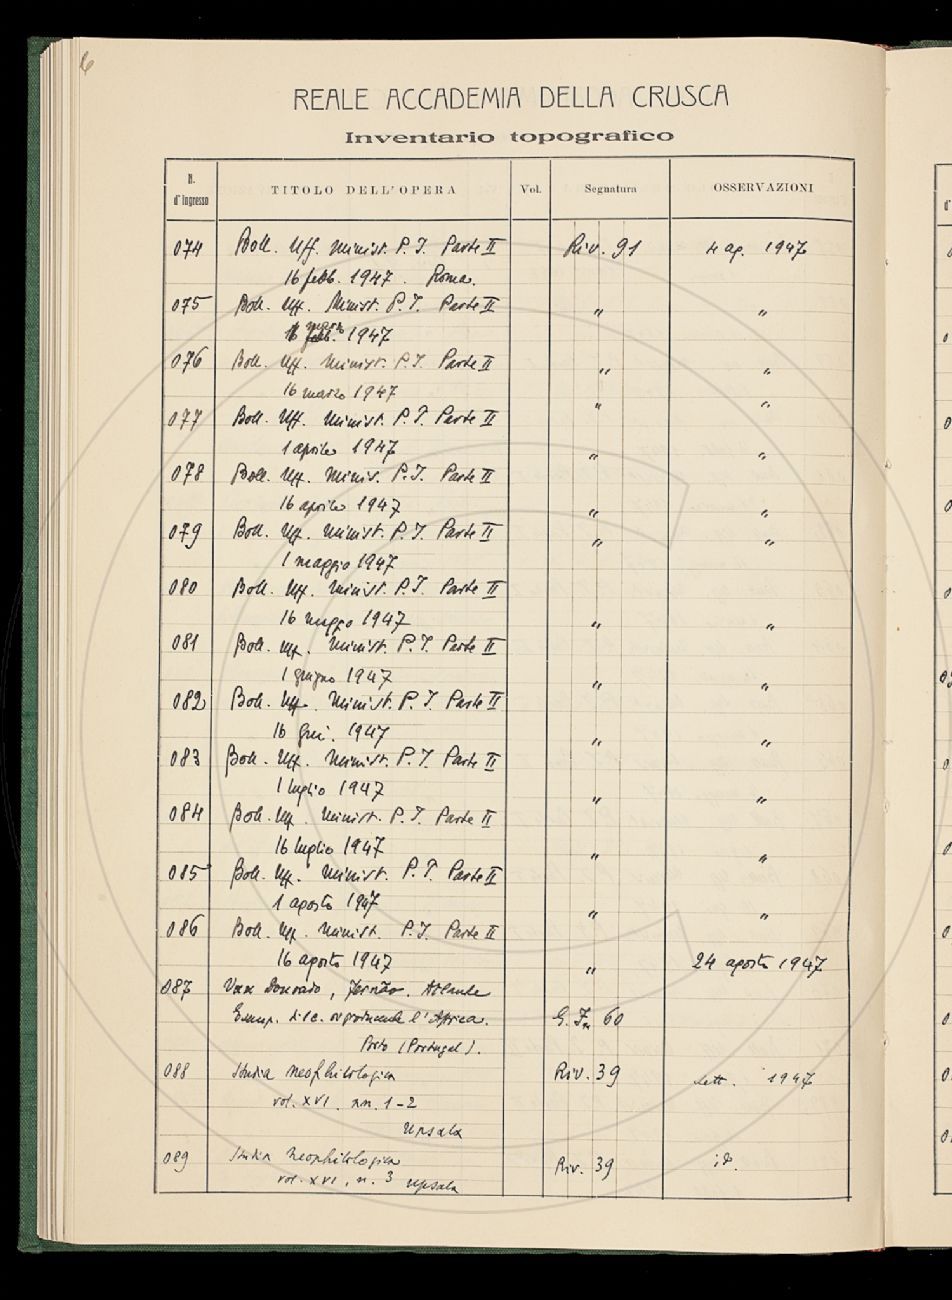 6
REALE ACCADEMIA DELLA CRUSCA
Inventario topografico
N. d'Ingresso TITOLO DELL'OPERA Vol. Segnatura OSSERVAZIONI
074 Boll. Uff. Minist. P. I. Parte II Riv. 91 4 ag. 1947
16 febb. 1947. Roma.
075 Boll. Uff. Minist. P. I. Parte II " "
1 marzo 1947
076 Boll. Uff. Minist. P. I. Parte II " "
16 marzo 1947
" "
077 Boll. Uff. Minist. P. I. Parte II
1 aprile 1947 " "
078 Boll. Uff. Minis. P. I. Parte II
16 aprile 1947 " "
079 Boll. Uff. Minist. P. I. Parte II " "
1 maggio 1947
080 Boll. Uff. Minist. P. I. Parte II
16 maggio 1947 " "
081 Boll. Uff. Minist. P. I. Parte II
1 giugno 1947 " "
082 Boll. Uff. Minist. P. I. Parte II
16 giu. 1947 " "
083 Boll. Uff. Minist. P. I. Parte II
1 luglio 1947 " "
084 Boll. Uff. Minist. P. I. Parte II
16 luglio 1947 " "
085 Boll. Uff. Minist. P. I. Parte II
1 agosto 1947 " "
086 Boll. Uff. Minist. P. I. Parte II
16 agosto 1947 " 24 agosto 1947
087 Vaz Dourado, Fernão. Atlante
l'Africa. 60
Porto (Portugal).
088 Studia neophilologica Riv. 39 sett. 1947
vol. XVI. nn. 1-2
Upsala
089 Studia Neophilologica Riv. 39 id.
vol. XVI, n. 3 Upsala